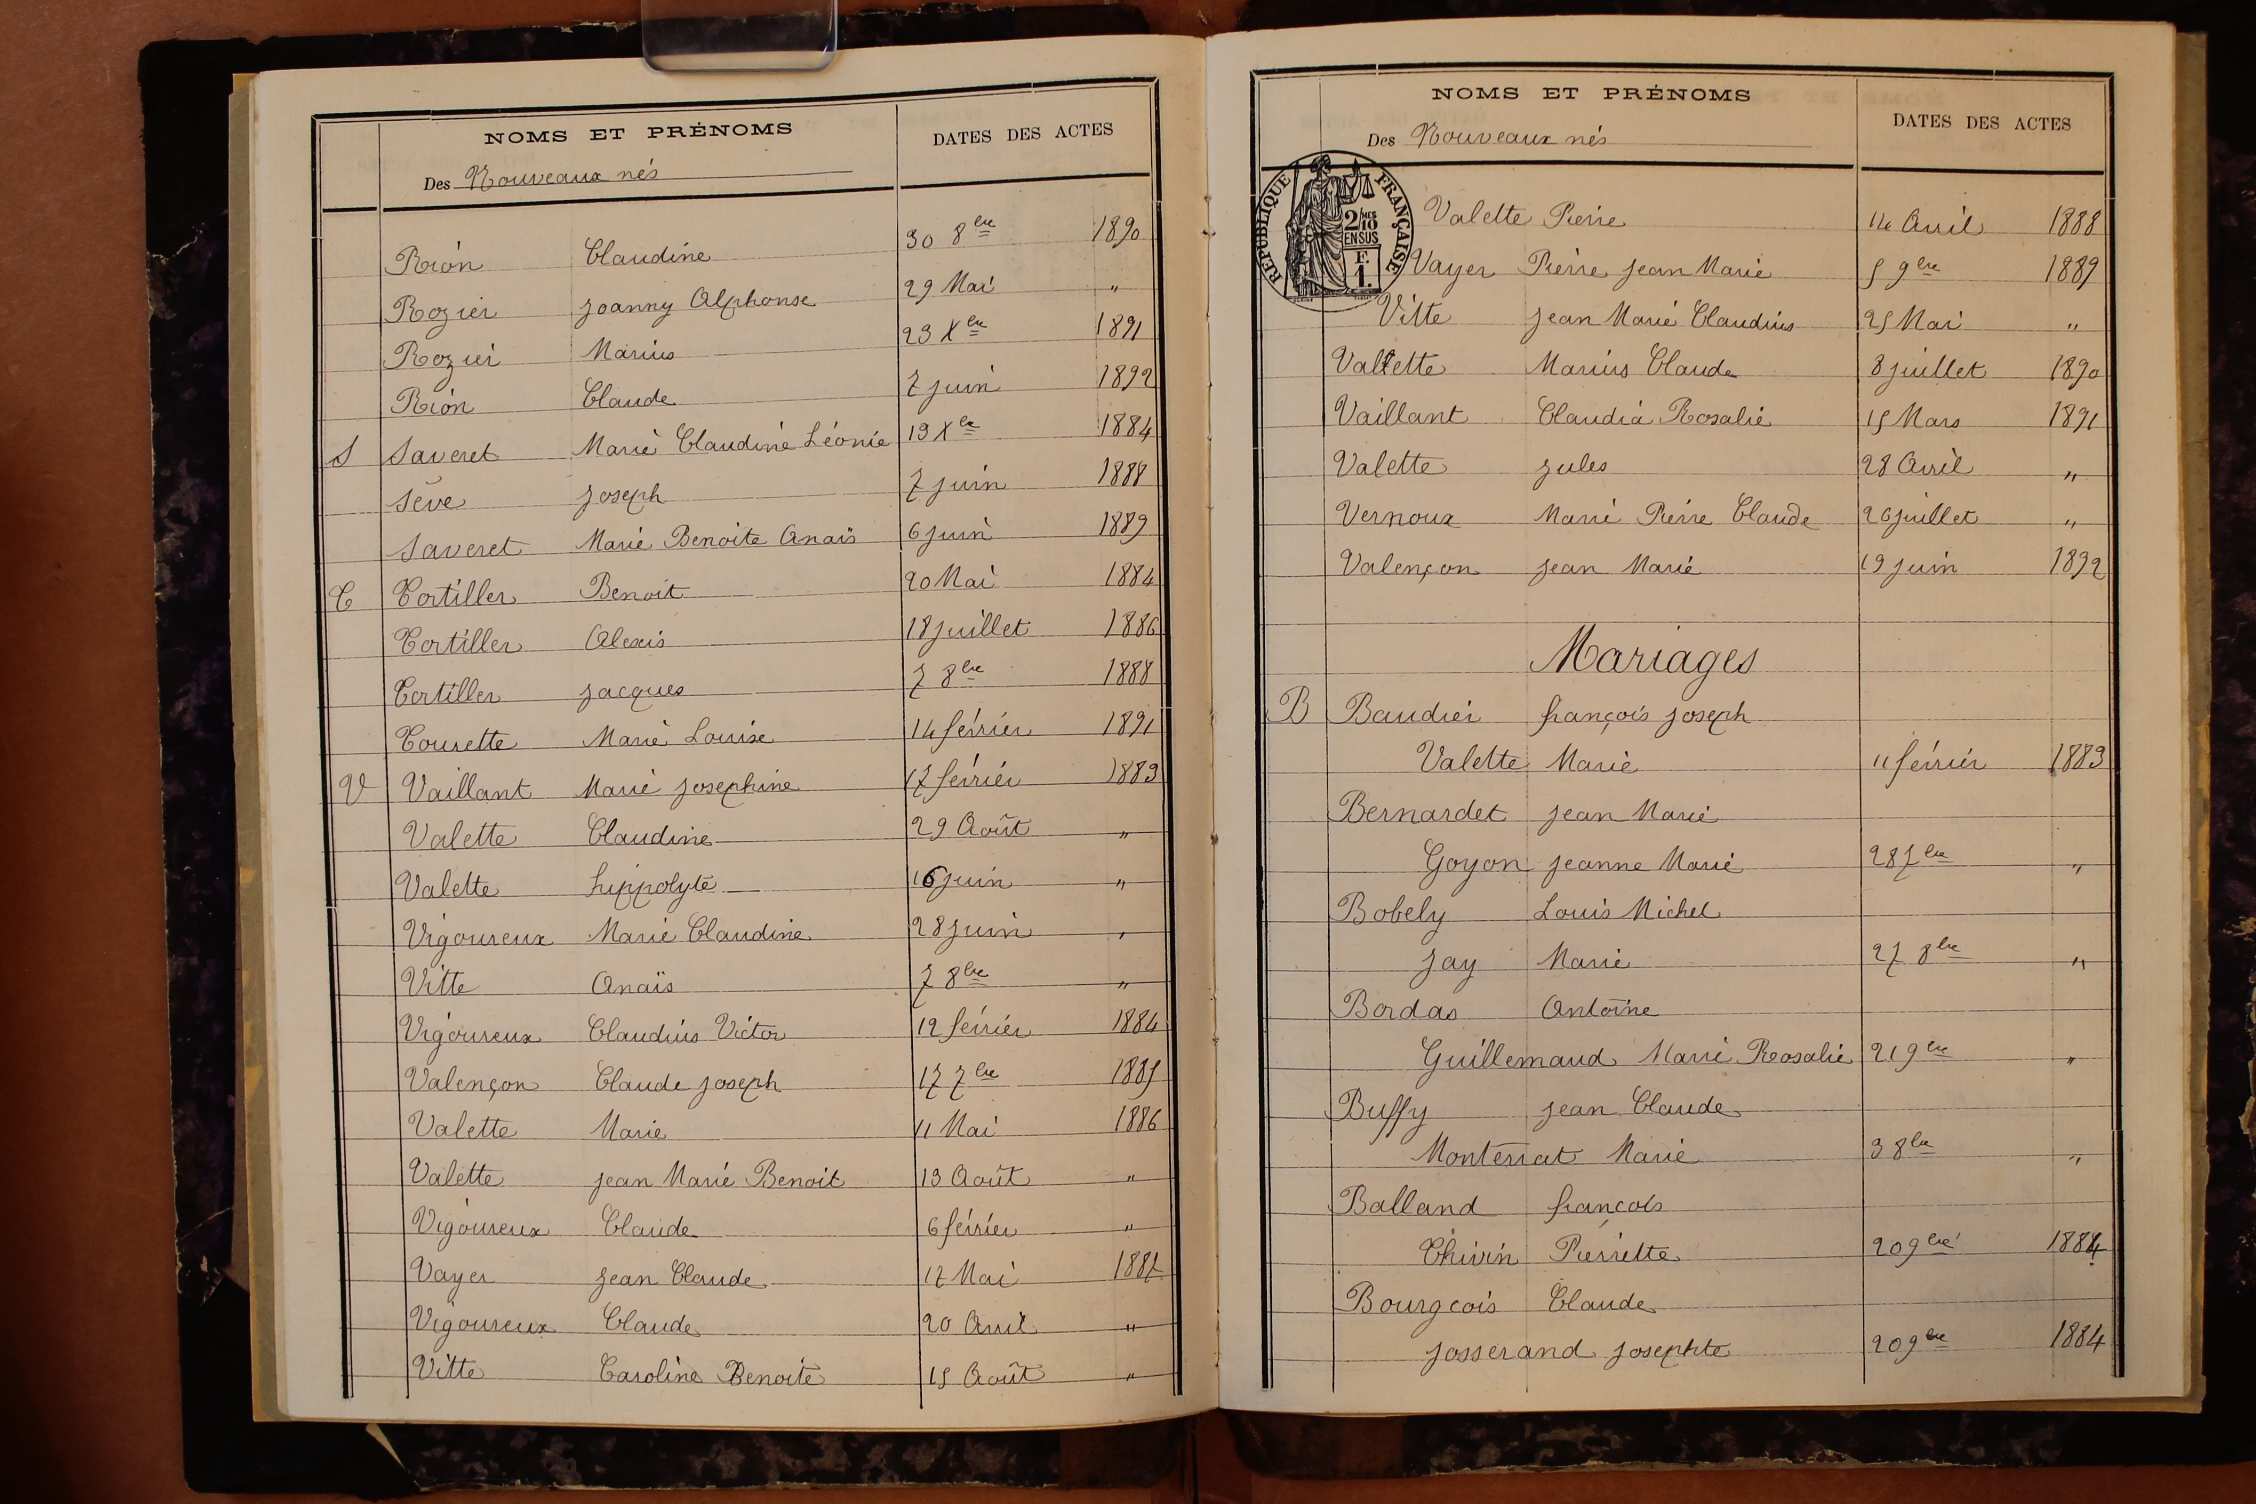 NOMS ET PRÉNOMS DATES DES ACTES
Des Nouveaux nés
Rion Claudine 30 8bre 1890
Rozier Joanny Alphonse 29 Mai "
Rozier Marius 23 Xbre 1891
Rion Claude 7 juin 1892
S Saveret Marie Claudine Léonie 13 Xbre 1884
Sève Joseph 7 juin 1888
Saveret Marie Benoite Anaïs 6 juin 1889
T Tortiller Benoit 20 Mai 1884
Tortiller Alexis 18 juillet 1886
Tortiller Jacques 7 8bre 1888
Tourette Marie Louise 14 février 1891
V Vaillant Marie Josephine 17 février 1883
Valette Claudine 29 Août "
Valette hippolyte 16 juin "
Vigoureux Marie Claudine 28 juin "
Vitte Anaïs 7 8bre "
Vigoureux Claudius Victor 12 février 1884
Valençon Claude Joseph 17 7bre 1885
Valette Marie 11 Mai 1886
Valette Jean Marie Benoit 13 Août "
Vigoureux Claude 6 février "
Vayer Jean Claude 17 Mai 1887
Vigoureux Claude 20 Avril "
Vitte Caroline Benoite 15 Août "
NOMS ET PRÉNOMS DATES DES ACTES
Des Nouveaux nés
RÉPUBLIQUE FRANÇAISE
2/MES
10
EN SUS
F.
1.
Valette Pierre 14 Avril 1888
Vayer Pierre Jean Marie 5 9bre 1889
Vitte Jean Marie Claudius 25 Mai "
Valette Marius Claude 8 juillet 1890
Vaillant Claudia Rosalie 15 Mars 1891
Valette Jules 28 Avril "
Vernoux Marie Pierre Claude 26 juillet "
Valençon Jean Marie 19 juin 1892
Mariages
B Baudier françois Joseph
Valette Marie 11 février 1883
Bernardet Jean Marie
Goyon Jeanne Marie 28 7bre "
Bobely Louis Michel
Jay Marie 27 8bre "
Bordas Antoine
Guillemaud Marie Rosalie 21 9bre "
Buffy Jean Claude
Monterrat Marie 3 8bre "
Balland francois
Chivin Pierrette 20 9bre 1884
Bourgeois Claude
Josserand Josephte 20 9bre 1884